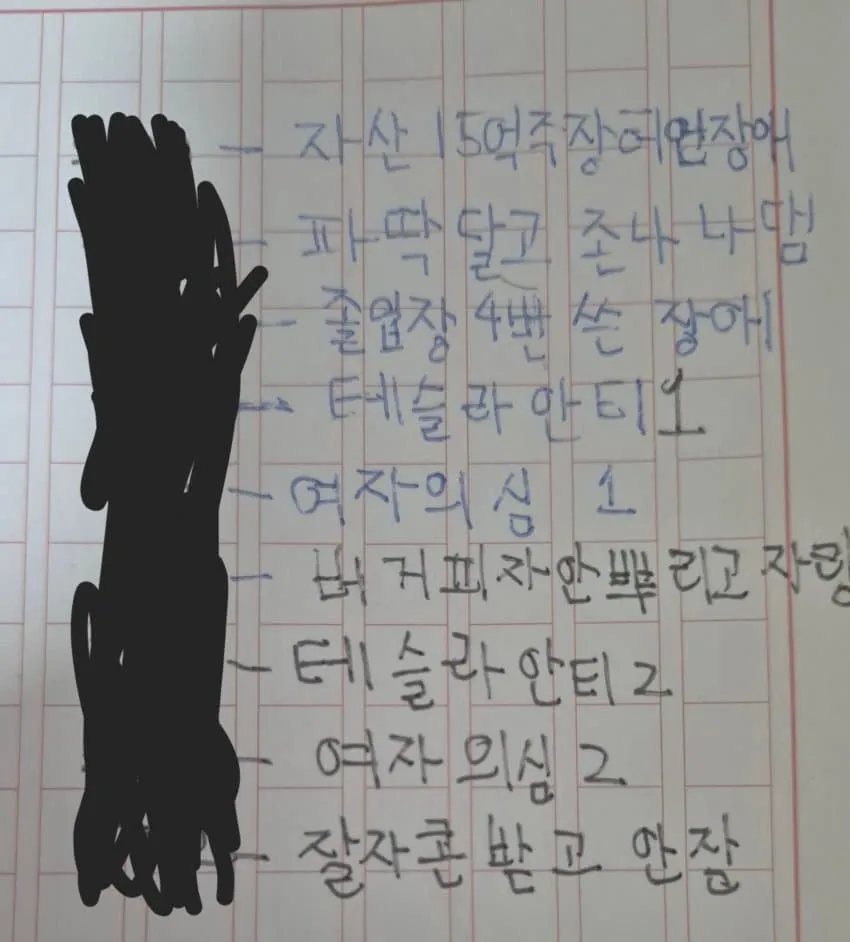 - 자산 15억주장허언장애
- 파딱 달고 존나 나댐
- 졸업장 4번 쓴 장애
- 테슬라 안티 1
- 여자의심 1
- 버거피자안뿌리고자랑
- 테슬라안티 2
- 여자의심 2
- 잘자콘 받고 안잠